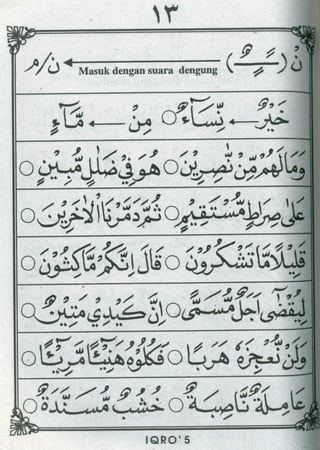 ١٣
نْ (ــًــٍــٌ) ← ن/م
Masuk dengan suara dengung
خَيْرٌ ← نِّسَآءٌ ○ مِنْ ← مَّآءٍ
وَمَا لَهُمْ مِّنْ نّٰصِرِيْنَ ○ هُوَ فِيْ ضَلٰلٍ مُّبِيْنٍ ○
عَلٰى صِرَاطٍ مُّسْتَقِيْمٍ ○ ثُمَّ دَمَّرْنَا الْاٰخَرِيْنَ ○
قَلِيْلًا مَّا تَشْكُرُوْنَ ○ قَالَ اِنَّكُمْ مَّاكِثُوْنَ ○
لِيُقْضٰٓى اَجَلٌ مُّسَمًّى ○ اِنَّ كَيْدِيْ مَتِيْنٌ ○
وَلَنْ نُّعْجِزَهٗ هَرَبًا ○ فَكُلُوْهُ هَنِيْٓئًا مَّرِيْٓئًا ○
عَامِلَةٌ نَّاصِبَةٌ ○ خُشُبٌ مُّسَنَّدَةٌ ○
IQRO' 5